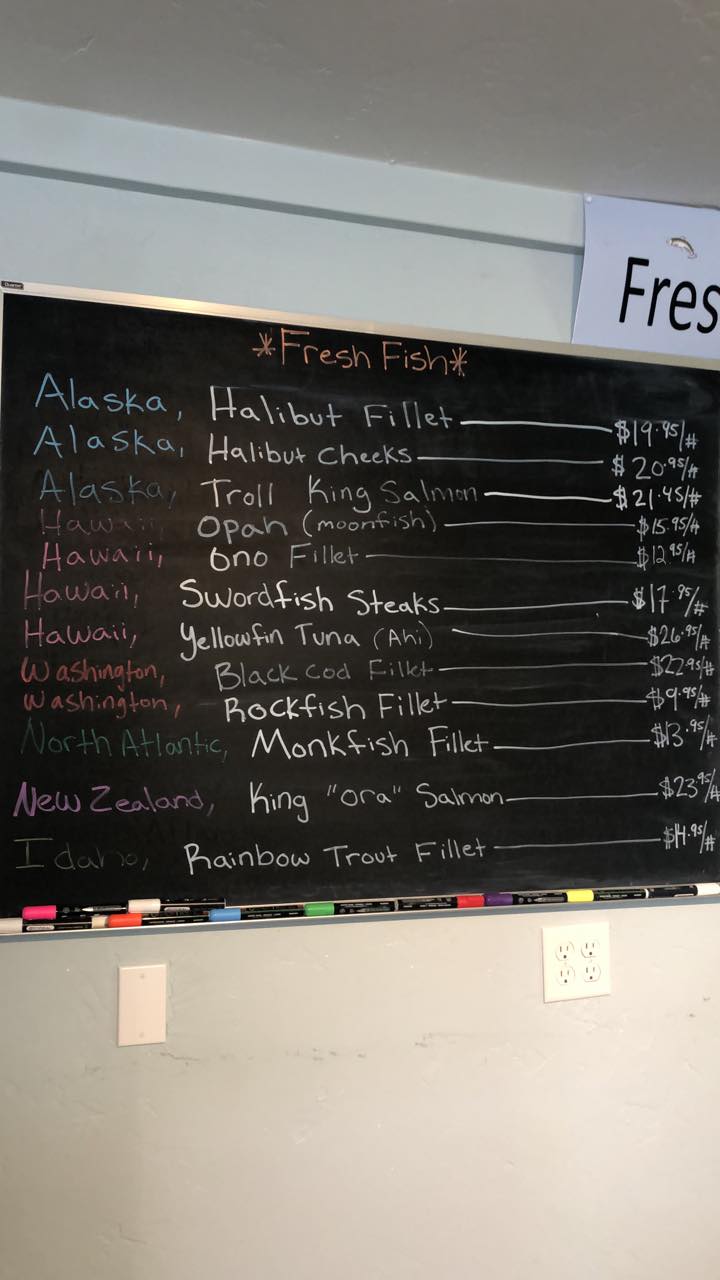 Fres
*Fresh Fish*
Alaska, Halibut Fillet $19.95/#
Alaska, Halibut Cheeks $20.95/#
Alaska, Troll King Salmon $21.45/#
Hawaii, Opah (moonfish) $15.95/#
Hawaii, Ono Fillet $12.95/#
Hawaii, Swordfish Steaks $17.95/#
Hawaii, Yellowfin Tuna (Ahi) $26.95/#
Washington, Black cod Fillet $22.95/#
Washington, Rockfish Fillet $9.95/#
North Atlantic, Monkfish Fillet $13.95/#
New Zealand, King "Ora" Salmon $23.95/#
Idaho, Rainbow Trout Fillet $14.95/#